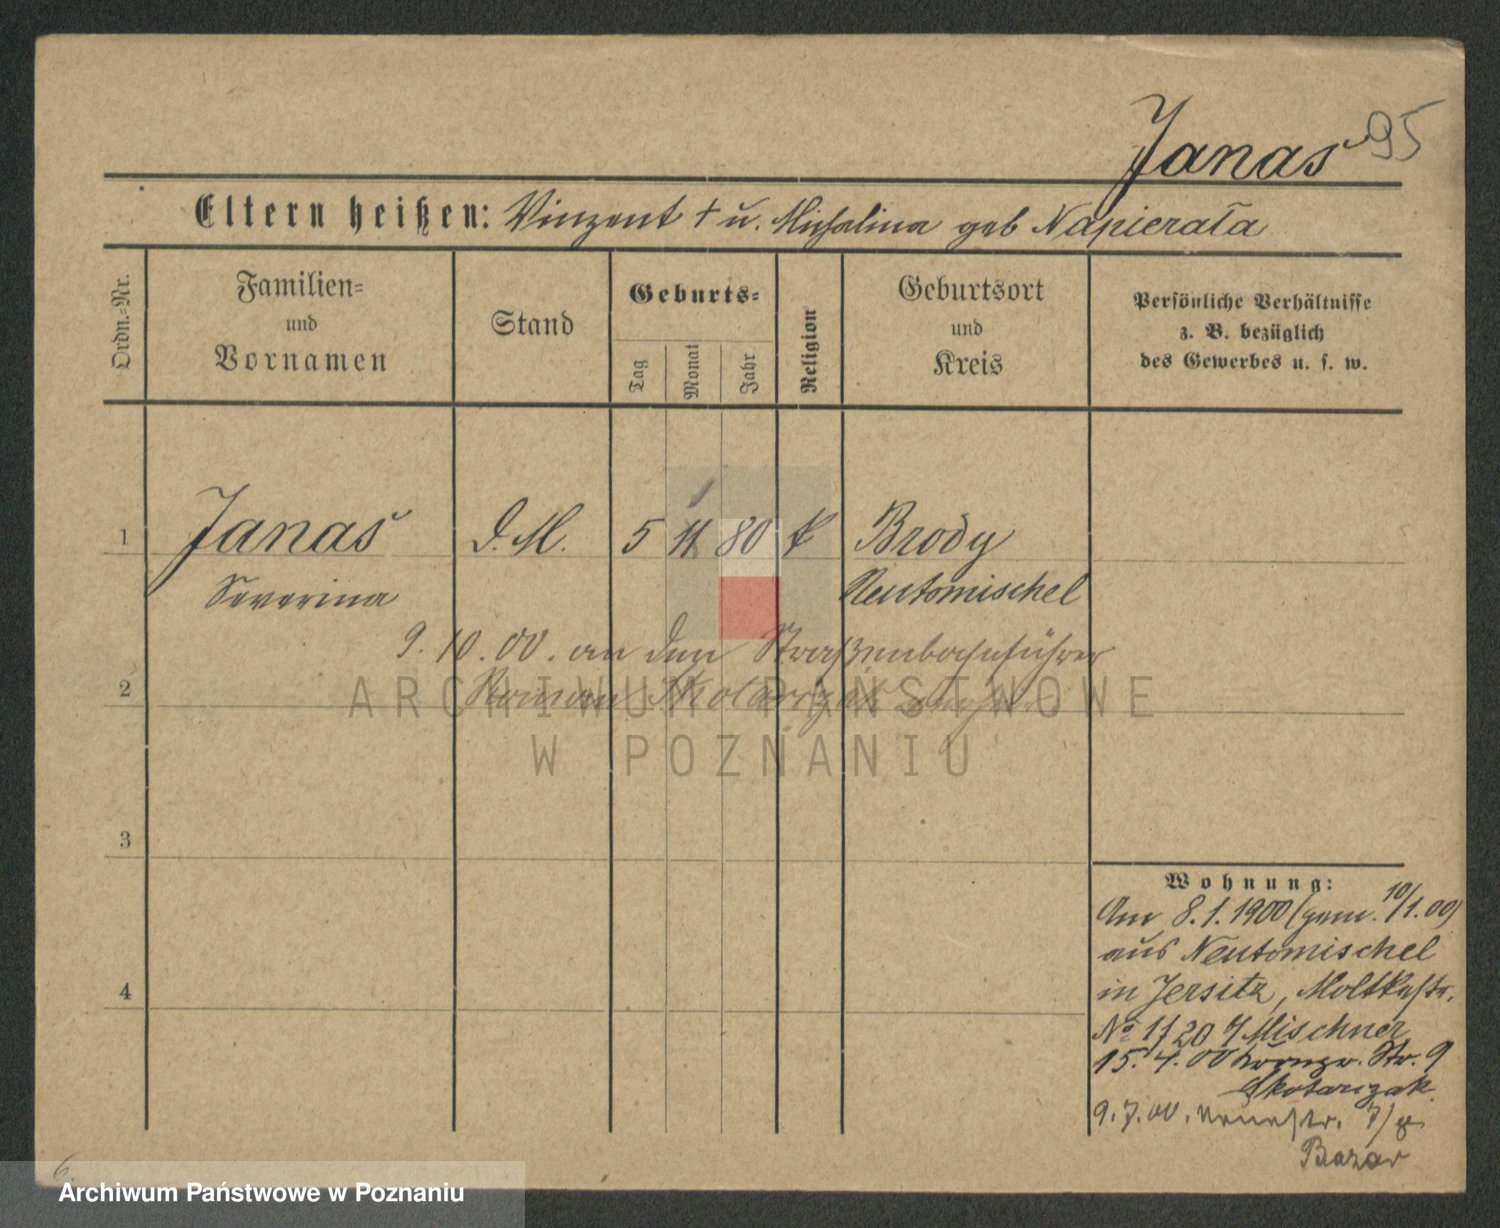 Janas 95
Eltern heißen: Vinzent † u. Michalina geb Napierała
Ordn.-Nr.
Familien-
und
Vornamen
Stand
Geburts-
Tag
Monat
Jahr
Religion
Geburtsort
und
Kreis
Persönliche Verhältnisse
z. B. bezüglich
des Gewerbes u. s. w.
1
1 Janas D. M. 5 11 80 k Brody
Severina Neutomischel
9. 10. 00. an den Straßenbahnführer
2 Roman Skotarczak
ARCHIWUM PAŃSTWOWE
W POZNANIU
3
Wohnung:
Am 8. 1. 1900 (gem. 10/1. 00)
aus Neutomischel
in Jersitz, Moltkestr.
4
No 17 Mischner
15. 4. 00 Str. 9
Skotarczak.
9. 7. 00. Neuestr. 7/8
Bazar
6.
Archiwum Państwowe w Poznaniu